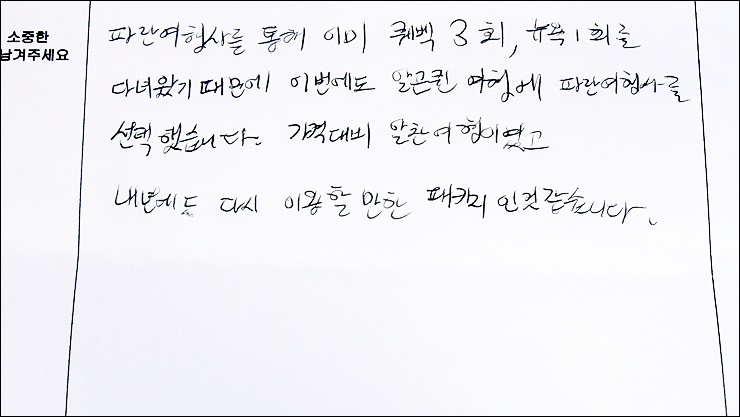 소중한
남겨주세요
파란여행사를 통해 이미 퀘벡 3회, 뉴욕 1회를
다녀왔기 때문에 이번에도 알곤퀸 여행에 파란여행사를
선택했습니다. 가격대비 알찬여행이였고
내년에도 다시 이용할 만한 패키지 인것 같습니다.